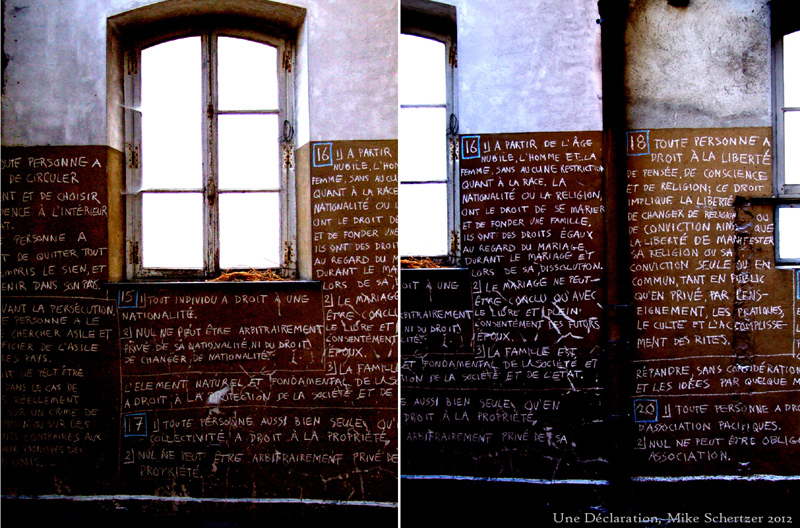 OUTE PERSONNE A
DE CIRCULER
NT ET DE CHOISIR
DENCE À L'INTÉRIEUR
PERSONNE A
DE QUITTER TOUT
OMPRIS LE SIEN, ET
ENIR DANS SON PAYS.
VANT LA PERSÉCUTION,
E PERSONNE A LE
CHERCHER ASILE ET
FICIER DE L'ASILE
LES PAYS.
NE PEUT ÊTRE
DANS LE CAS DE
RÉELLEMENT
SUR UN CRIME DE
OU SUR DES
CONTRAIRES AUX
15 1) TOUT INDIVIDU A DROIT À UNE
NATIONALITÉ.
2) NUL NE PEUT ÊTRE ARBITRAIREMENT
PRIVÉ DE SA NATIONALITÉ, NI DU DROIT
DE CHANGER DE NATIONALITÉ.
L'ELEMENT NATUREL ET FONDAMENTAL DE LA SO
A DROIT À LA PROTECTION DE LA SOCIÉTÉ ET DE
17 1) TOUTE PERSONNE AUSSI BIEN SEULE QU'EN
COLLECTIVITÉ, A DROIT À LA PROPRIÉTÉ
2) NUL NE PEUT ÊTRE ARBITRAIREMENT PRIVÉ DE
PROPRIÉTÉ
16 1) A PARTIR
NUBILE, L'HOM
FEMME, SANS AUCU
QUANT À LA RACE
NATIONALITÉ OU L
ONT LE DROIT DE
ET DE FONDER
ILS ONT DES DROI
AU REGARD DU
DURANT LE MA
LORS DE SA
2) LE MARIAGE
ÊTRE CONCLU
LE LIBRE ET
CONSENTEMENT
ÉPOUX.
3) LA FAMILLE
16 1) A PARTIR DE L'ÂGE
NUBILE, L'HOMME ET LA
FEMME, SANS AUCUNE RESTRICTION
QUANT À LA RACE, LA
NATIONALITÉ OU LA RELIGION,
ONT LE DROIT DE SE MARIER
ET DE FONDER UNE FAMILLE.
ILS ONT DES DROITS ÉGAUX
AU REGARD DU MARIAGE,
DURANT LE MARIAGE ET
LORS DE SA DISSOLUTION.
2) LE MARIAGE NE PEUT
ÊTRE CONCLU QU'AVEC
LE LIBRE ET PLEIN
CONSENTEMENT DES FUTURS
ÉPOUX.
3) LA FAMILLE EST
ET FONDAMENTAL DE LA SOCIÉTÉ ET
ION DE LA SOCIÉTÉ ET DE L'ÉTAT.
OIT À UNE
AIREMENT
NI DU DROIT
E AUSSI BIEN SEULE QU'EN
DROIT À LA PROPRIÉTÉ
ARBITRAIREMENT PRIVÉ DE SA
18 TOUTE PERSONNE A
DROIT À LA LIBERTÉ
DE PENSÉE, DE CONSCIENCE
ET DE RELIGION; CE DROIT
IMPLIQUE LA LIBERTÉ
DE CHANGER DE RELIGION OU
DE CONVICTION AINSI QUE
LA LIBERTÉ DE MANIFESTER
SA RELIGION OU SA
CONVICTION SEULE OU EN
COMMUN, TANT EN PUBLIC
QU'EN PRIVÉ, PAR L'ENS-
EIGNEMENT, LES PRATIQUES,
LE CULTE ET L'ACCOMPLISSE-
MENT DES RITES.
RÉPANDRE, SANS CONSIDÉRATION
ET LES IDÉES PAR QUELQUE M
20 1) TOUTE PERSONNE A DRO
D'ASSOCIATION PACIFIQUES.
2) NUL NE PEUT ÊTRE OBLIG
ASSOCIATION.
Une Déclaration, Mike Schertzer 2012